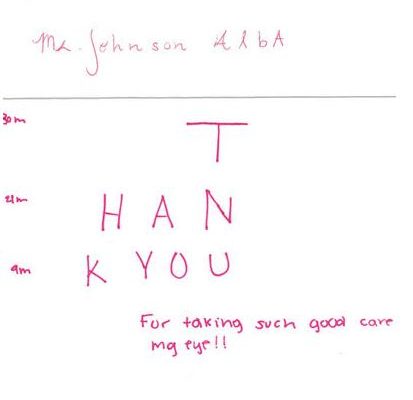 Mr. Johnson AlbA
30m T
21m H A N
9m K Y O U
For taking such good care
my eye!!